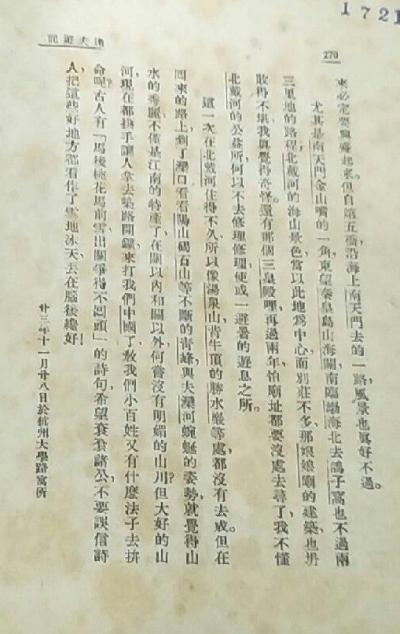 1721
270
記遊夫達
來必定要興盛起來。但自第五橋沿海上南天門去的一路，風景也眞好不過。
尤其是南天門金山嘴的一角，東望秦皇島山海關，南臨渤海，北去鴿子窩也不過兩
三里地的路程，北戴河的海山景色，當以此地爲中心，而別莊不多，那娘娘廟的建築也坍
敗得不堪，我眞覺得奇怪。還有那個三皇殿哩，再過兩年，怕廟址都要沒處去尋了，我不懂
北戴河的公益所，何以不去修理修理，使成一避暑的遊息之所。
這一次在北戴河住得不久，所以像湯泉山，背牛頂的勝水巖等處都沒有去成。但在
囘來的路上，到了灤口，看看陽山碣石山等不斷的靑峰，與夫灤河蜿蜒的姿勢，就覺得山
水的秀麗，不僅是江南的特產了，在關以內和關以外，何嘗沒有明媚的山川？但大好的山
河，現在都拱手讓人拿去築路開鑛，來打我們中國了，敎我們小百姓又有什麼法子去拼
命呢？古人有「馬後桃花馬前雪，出關爭得不囘頭」的詩句，希望袞袞諸公，不要誤信詩
人，把這些好地方都看作了雪地冰天，丟在腦後纔好！
廿三年十一月廿八日於杭州大學路寓所